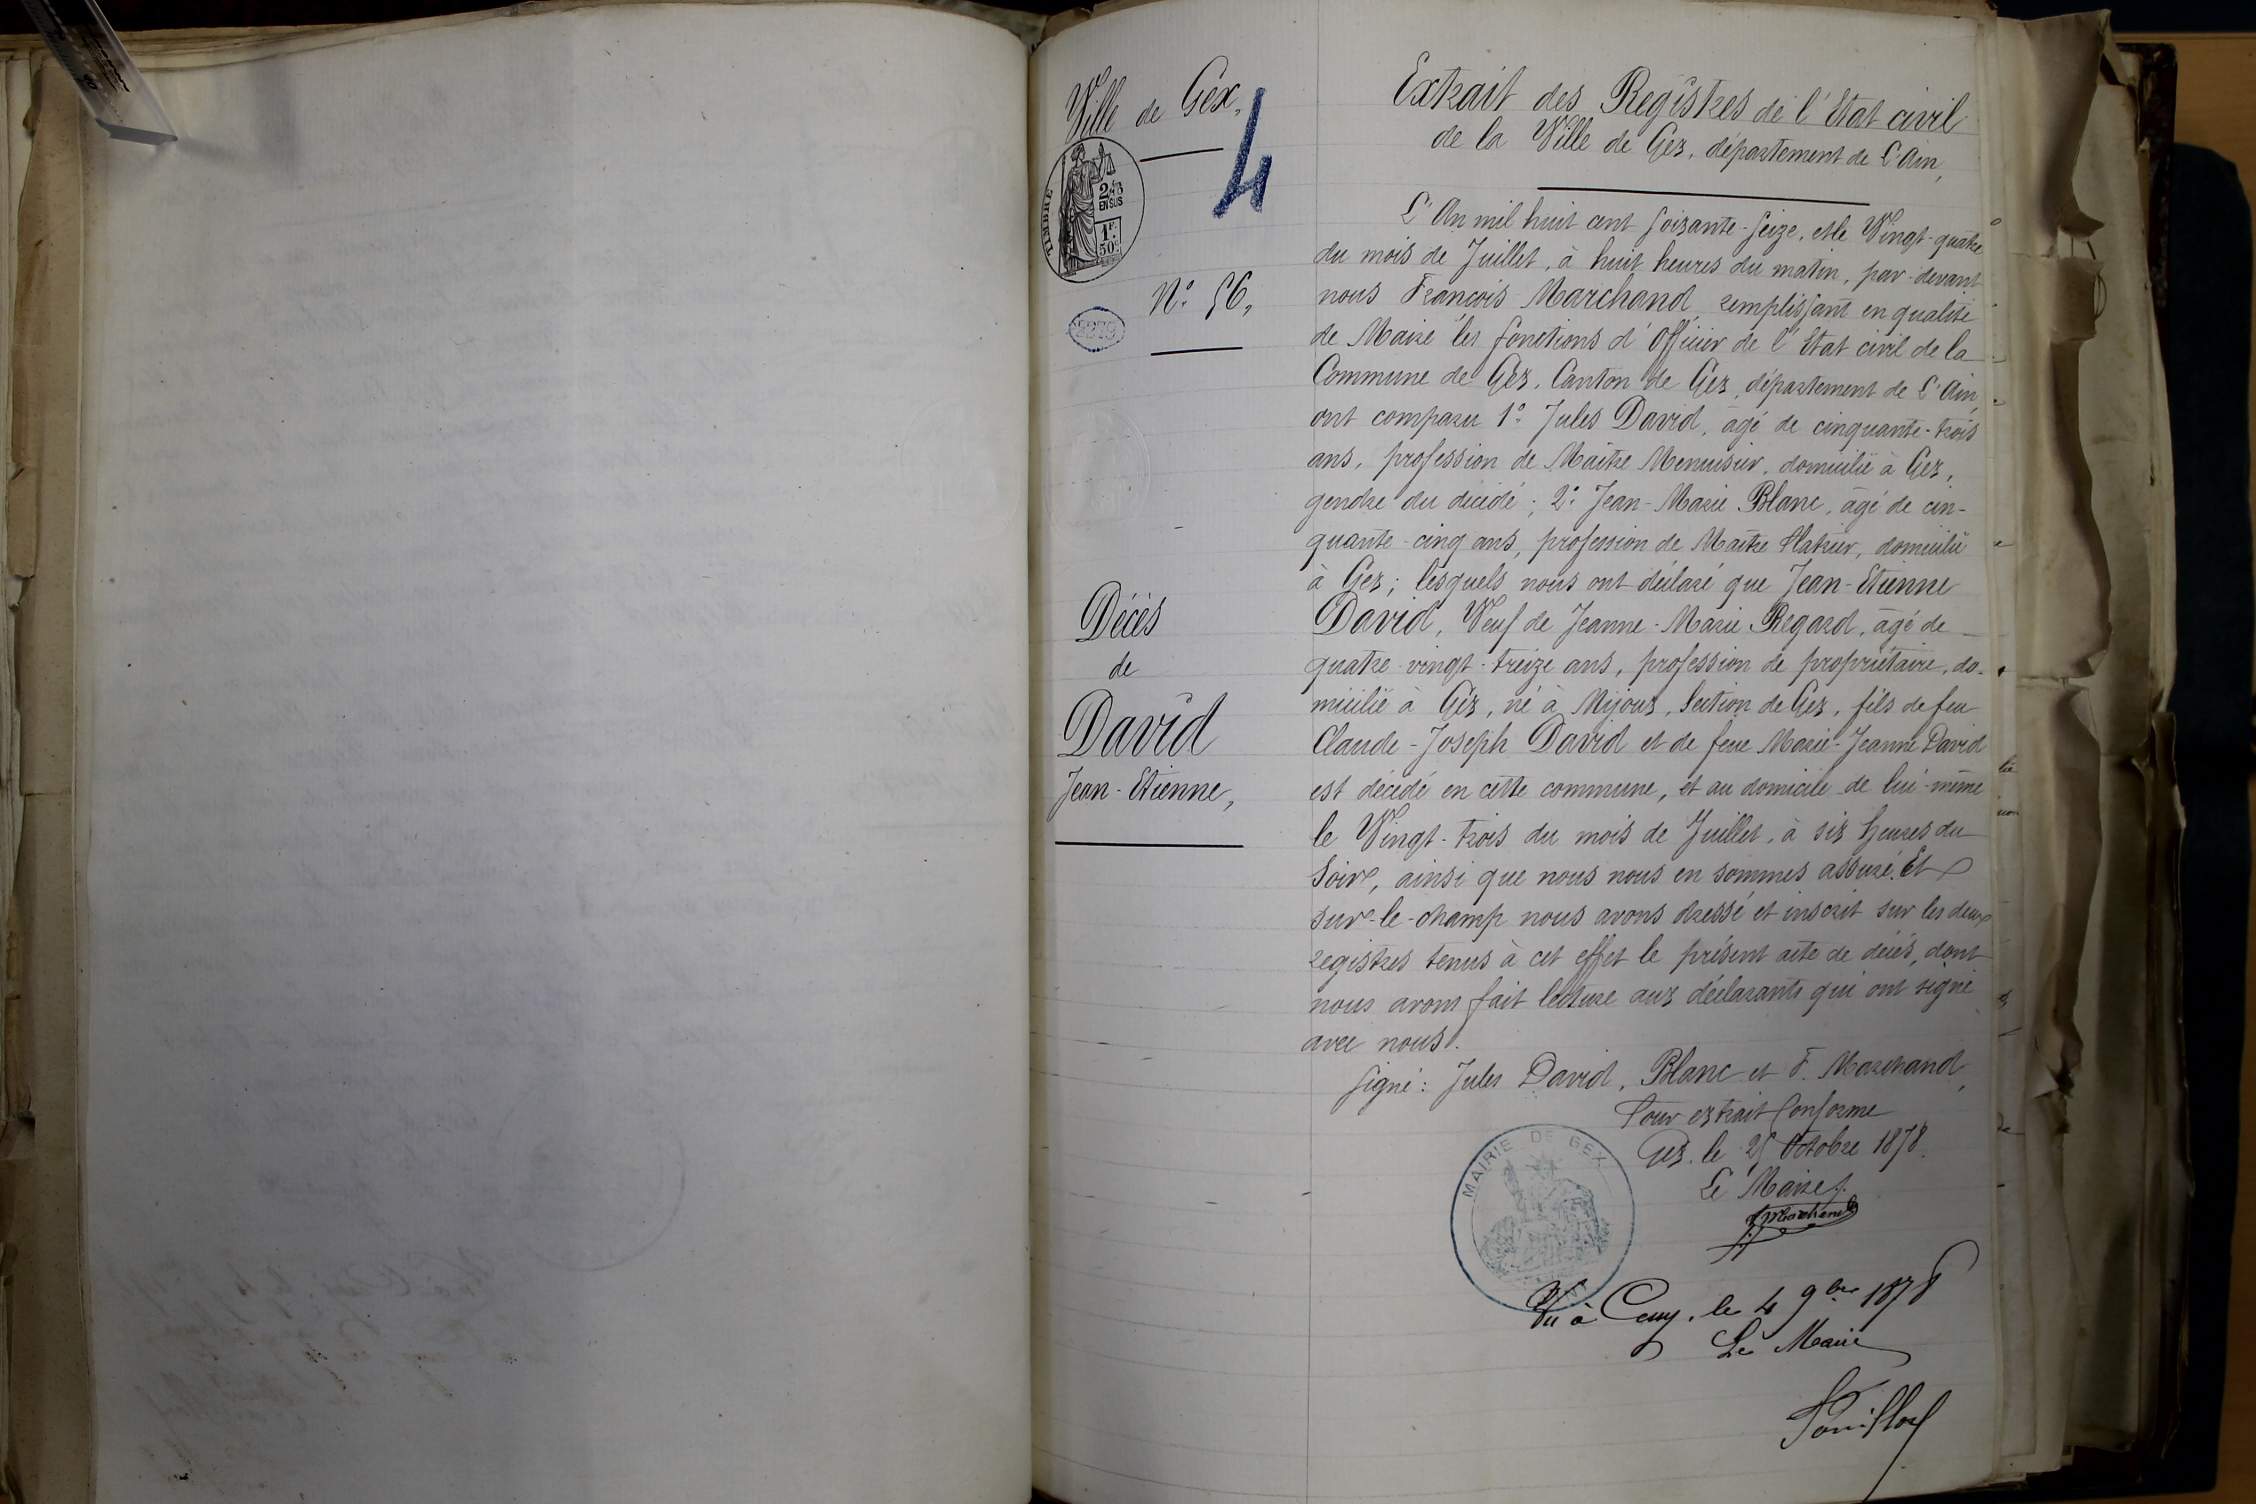 Ville de Gex,
4
TIMBRE
2/10
EN SUS
1F
50c
N° 56,
Décès
de
David
Jean-Etienne,
Extrait des Registres de l'Etat civil
de la Ville de Gex, département de l'Ain,
L'An mil huit cent soixante-seize, et le Vingt-quatre
du mois de Juillet, à huit heures du matin, par-devant
nous François Marchand, remplissant en qualité
de Maire les fonctions d'Officier de l'Etat civil de la
Commune de Gex, Canton de Gex, département de l'Ain,
ont comparu 1° Jules David, âgé de cinquante-trois
ans, profession de Maître Menuisier, domicilié à Gex,
gendre du décédé; 2° Jean-Marie Blanc, âgé de cin-
quante-cinq ans, profession de Maître Platrier, domicilié
à Gex; lesquels nous ont déclaré que Jean-Etienne
David, Veuf de Jeanne-Marie Regard, âgé de
quatre-vingt-treize ans, profession de propriétaire, do-
micilié à Gex, né à Mijoux, Section de Gex, fils de feu
Claude-Joseph David et de feue Marie-Jeanne David
est décédé en cette commune, et au domicile de lui-même
le Vingt-trois du mois de Juillet, à six heures du
Soir, ainsi que nous nous en sommes assuré. Et
sur-le-champ nous avons dressé et inscrit sur les deux
registres tenus à cet effet le présent acte de décès, dont
nous avons fait lecture aux déclarants qui ont signé
avec nous.
Signé: Jules David, Blanc et F. Marchand,
Pour extrait Conforme
Gex, le 25 Octobre 1878.
Le Maire,
F Marchand
MAIRIE DE GEX
Vu à Cuuy, le 4 9bre 1878
Le Maire